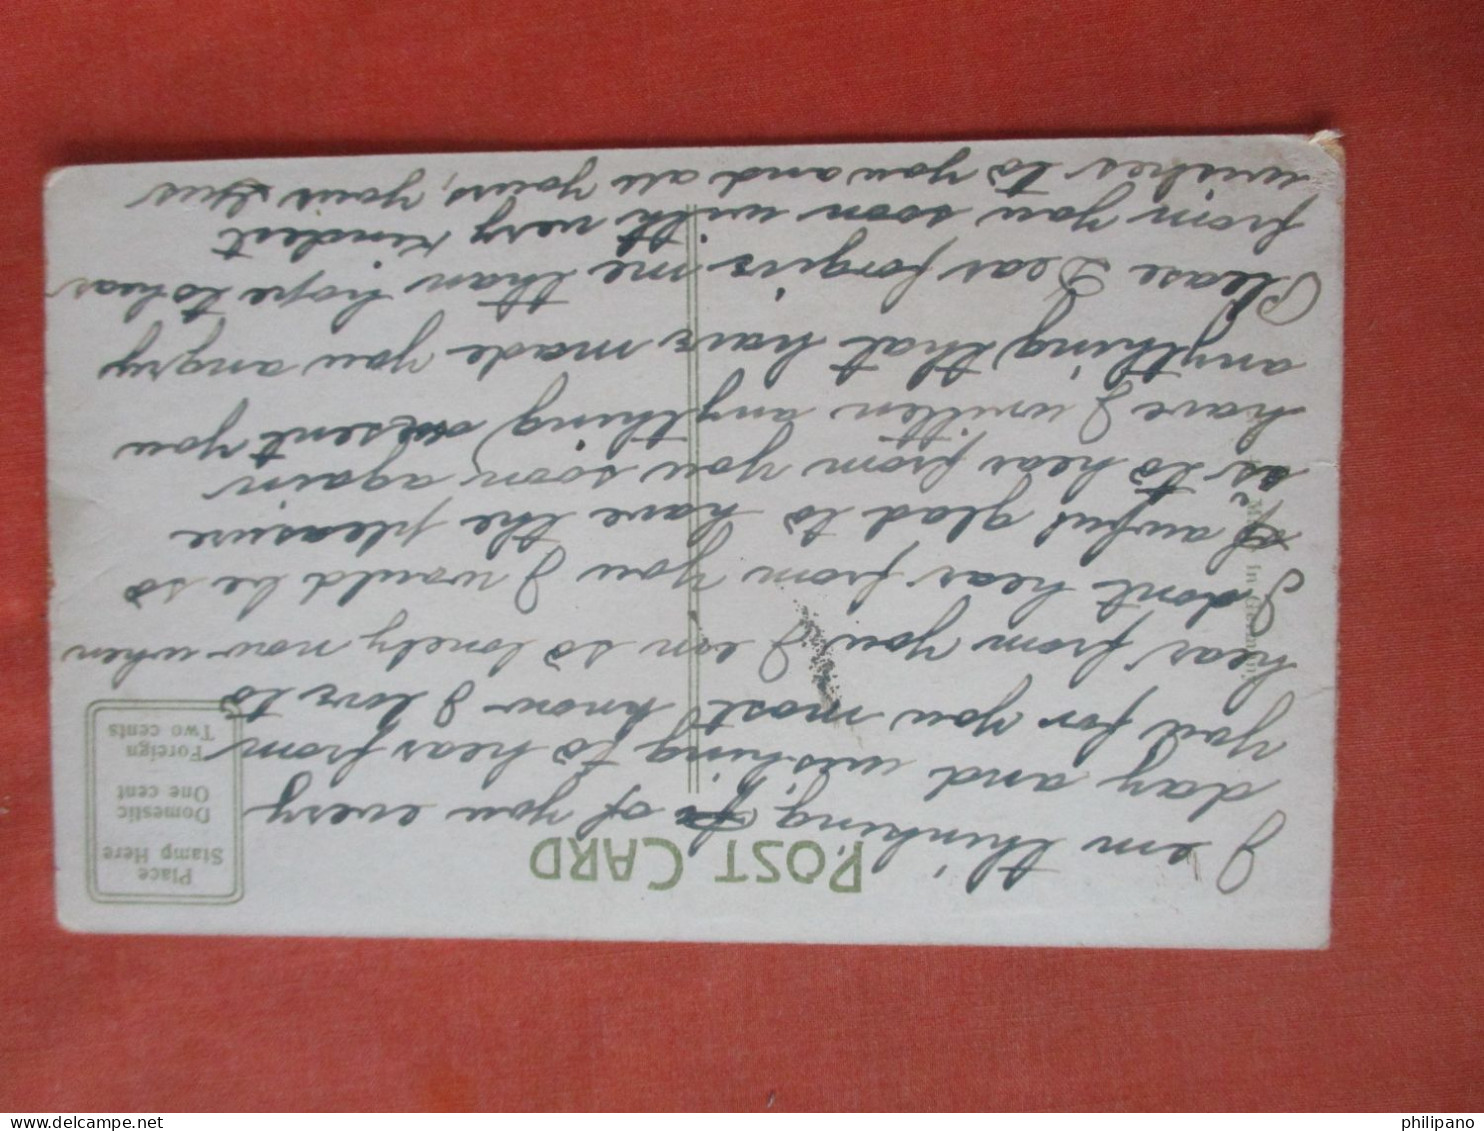 POST CARD
Place
Stamp Here
Domestic
One cent
Foreign
Two cents
I em thinking of you every
day and wishing to hear from
you for you most know I love to
hear from you I em so lonely now when
I dont hear from you I would be so
awful glad to have the pleasure
as to hear from you soon again
have I written anything sent you
anything that hair made you angry
Please Dear forgive me than hope to hear
from you soon with very kindest
wishes to you and all yours, yours Gus
philipano